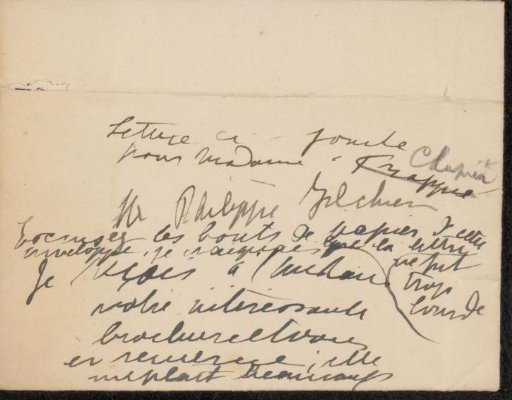 Lettre ci-jointe
pour Madame Frappié Chapin
Mr Philippe Zilcken
Excusez les bouts de papier, d'cette
enveloppe, je craignais que la lettre ne fut trop lourde
Je reçois à l'instant
votre intéressante
brochure et vous
en remercie, elle
me plaît beaucoup